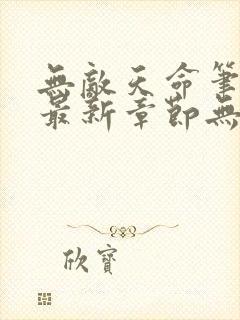 無敵天命筆
最新章節無
欣寶